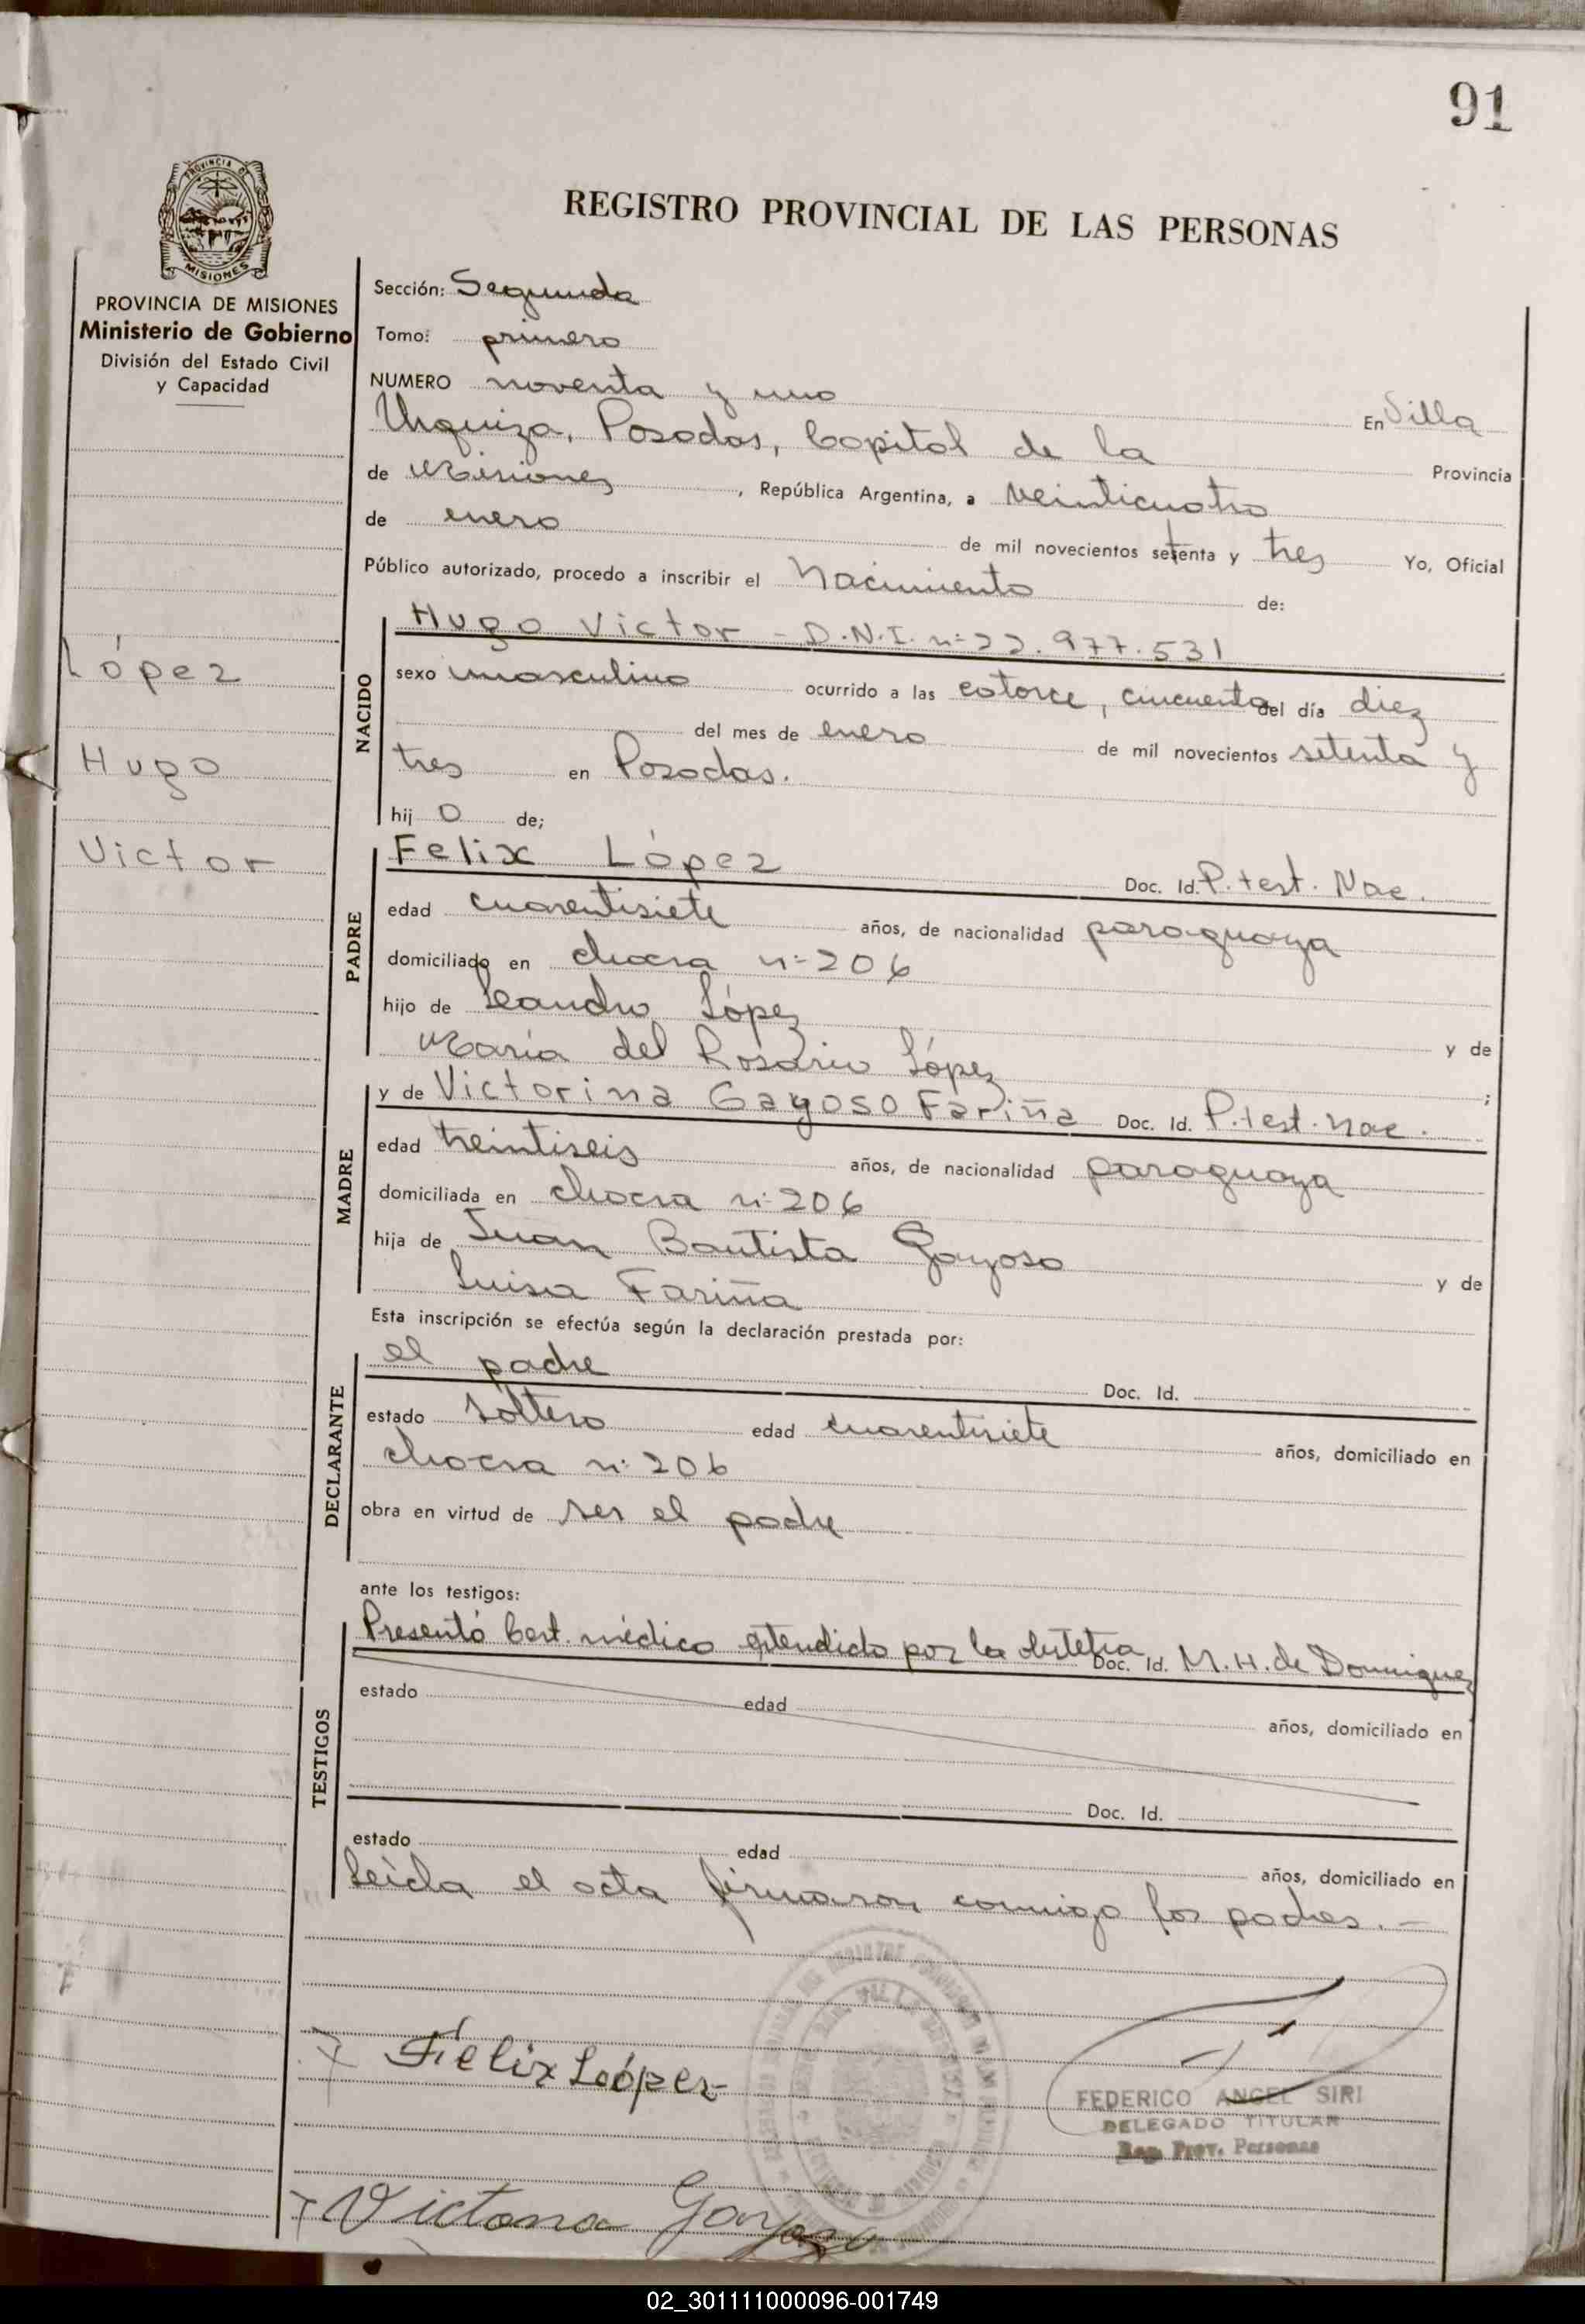 91
PROVINCIA DE
MISIONES
REGISTRO PROVINCIAL DE LAS PERSONAS
PROVINCIA DE MISIONES
Ministerio de Gobierno
División del Estado Civil
y Capacidad
López
Hugo
Victor
Sección: Segunda
Tomo: primero
NUMERO noventa y uno En Villa
Urquiza, Posadas, Capital de la Provincia
de Misiones, República Argentina, a veinticuatro
de enero de mil novecientos setenta y tres Yo, Oficial
Público autorizado, procedo a inscribir el Nacimiento de:
NACIDO
Hugo Victor - D.N.I. n=22.977.531
sexo masculino ocurrido a las catorce, cincuenta del día diez
del mes de enero de mil novecientos setenta y
tres en Posadas.
hijo de;
PADRE
Felix López Doc. Id. P. test. Nac.
edad cuarentisiete años, de nacionalidad paraguaya
domiciliado en chacra n=206
hijo de Leandro López y de
María del Rosario López;
MADRE
y de Victorina Gayoso Fariña Doc. Id. P. test. nac.
edad treintiseis años, de nacionalidad paraguaya
domiciliada en chacra n=206
hija de Juan Bautista Gayoso y de
Luisa Fariña
Esta inscripción se efectúa según la declaración prestada por:
DECLARANTE
el padre Doc. Id.
estado soltero edad cuarentisiete años, domiciliado en
chacra n=206
obra en virtud de ser el padre
ante los testigos:
TESTIGOS
Presentó Cert. médico extendido por la obstetra Doc. Id. M. H. de Dominguez
estado edad años, domiciliado en
Doc. Id.
estado edad años, domiciliado en
Leída el acta firmaron conmigo los padres.-
Felix López
FEDERICO ANGEL SIRI
DELEGADO TITULAR
Reg. Prov. Personas
Victorina Gayoso
02_301111000096-001749